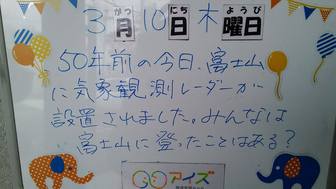 3月10日木曜日
がつ にち ようび
50年前の今日、富士山
に気象観測レーダーが
設置されました。みんなは
富士山に登ったことはある?
アイズ